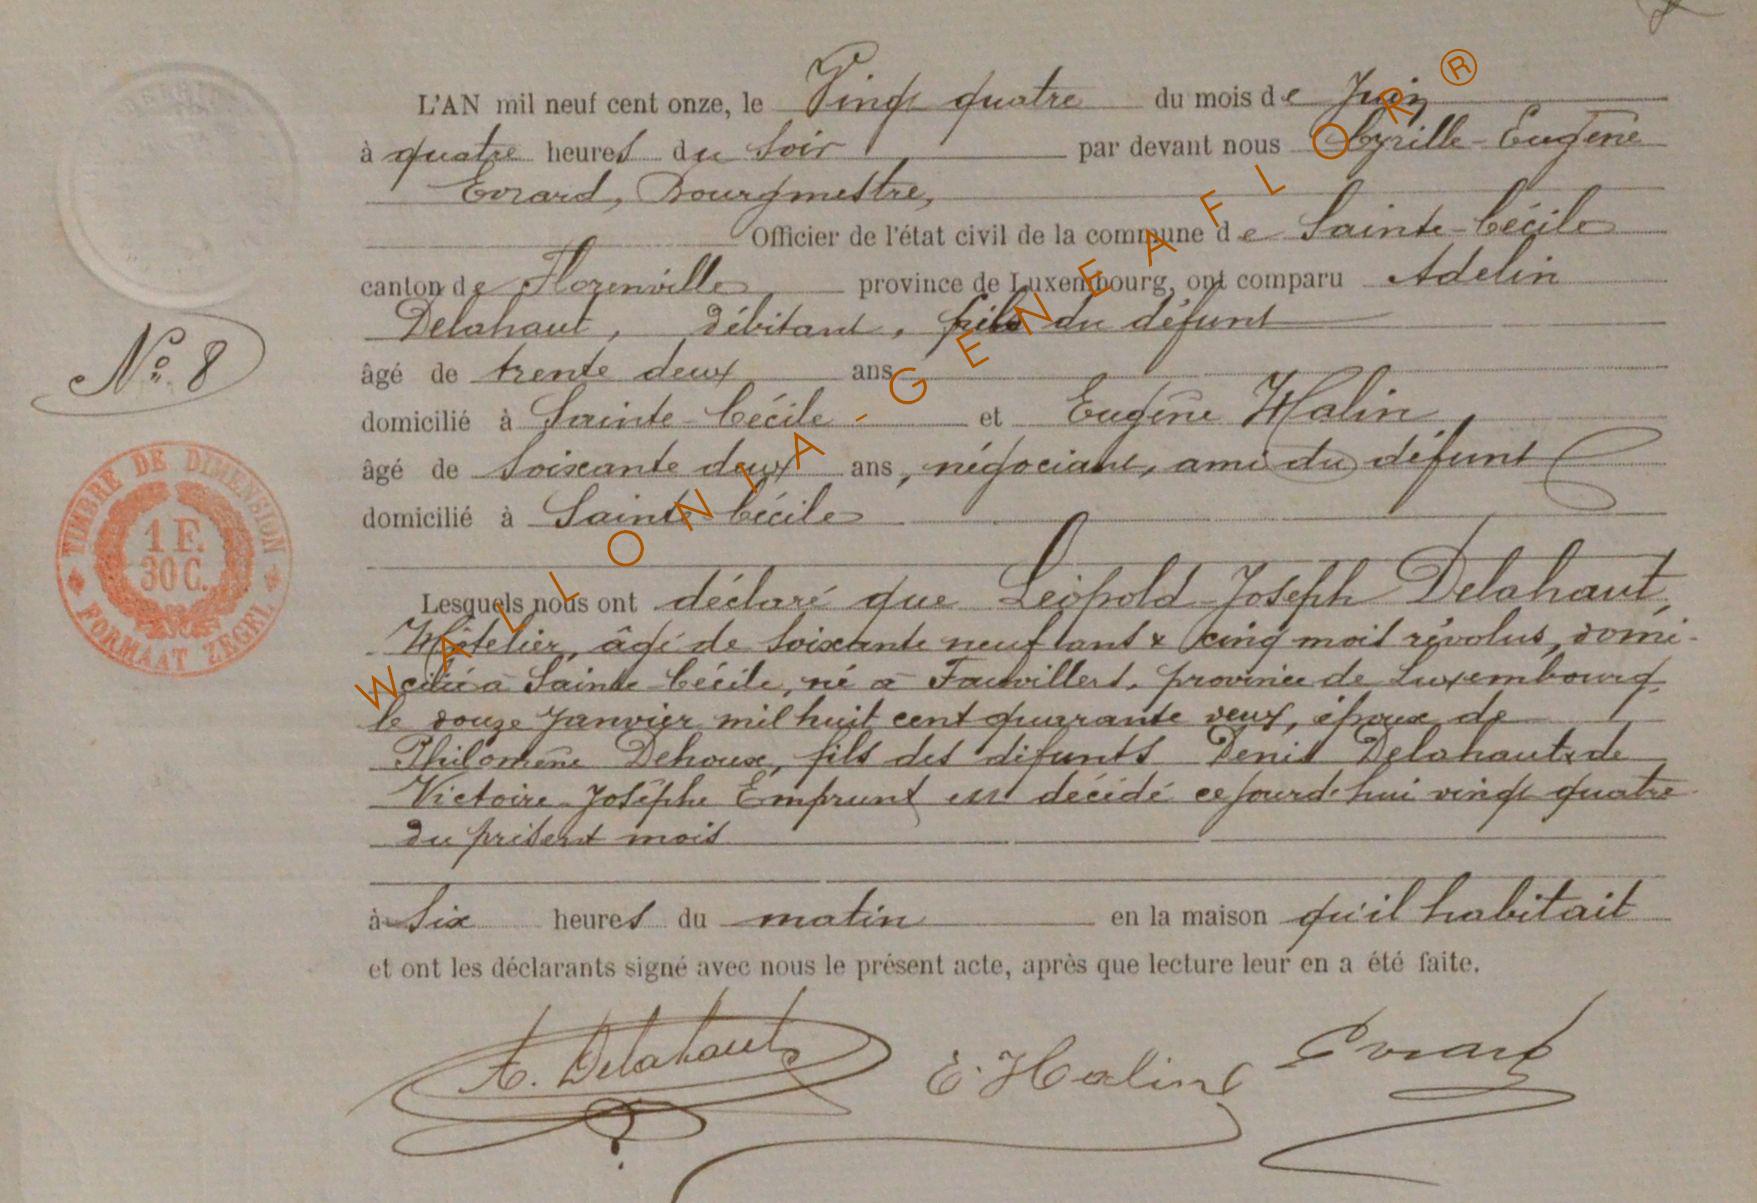 L'AN mil neuf cent onze, le Vingt quatre du mois de Juin
à quatre heures du soir par devant nous Cyrille-Eugène
Evrard, Bourgmestre,
Officier de l'état civil de la commune de Sainte-Cécile
canton de Florenville province de Luxembourg, ont comparu Adelin
Delahaut, débitant, fils du défunt
âgé de trente deux ans
domicilié à Sainte-Cécile et Eugène Halin,
âgé de soixante deux ans, négociant, ami du défunt
domicilié à Sainte-Cécile
Lesquels nous ont déclaré que Léopold-Joseph Delahaut,
Hôtelier, âgé de soixante neuf ans & cinq mois révolus, domi-
cilié à Sainte-Cécile, né à Fauvillers, province de Luxembourg,
le douze Janvier mil huit cent quarante deux, époux de
Philomène Dehoux, fils des défunts Denis Delahaut & de
Victoire-Josèphe Emprunt est décédé ce jourd'hui vingt quatre
du présent mois
à six heures du matin en la maison qu'il habitait
et ont les déclarants signé avec nous le présent acte, après que lecture leur en a été faite.
A. Delahaut E. Halin Evrard
N° 8
TIMBRE DE DIMENSION
1 F.
30 C.
FORMAAT ZEGEL
WALLONIA - GENEAFLOR ®